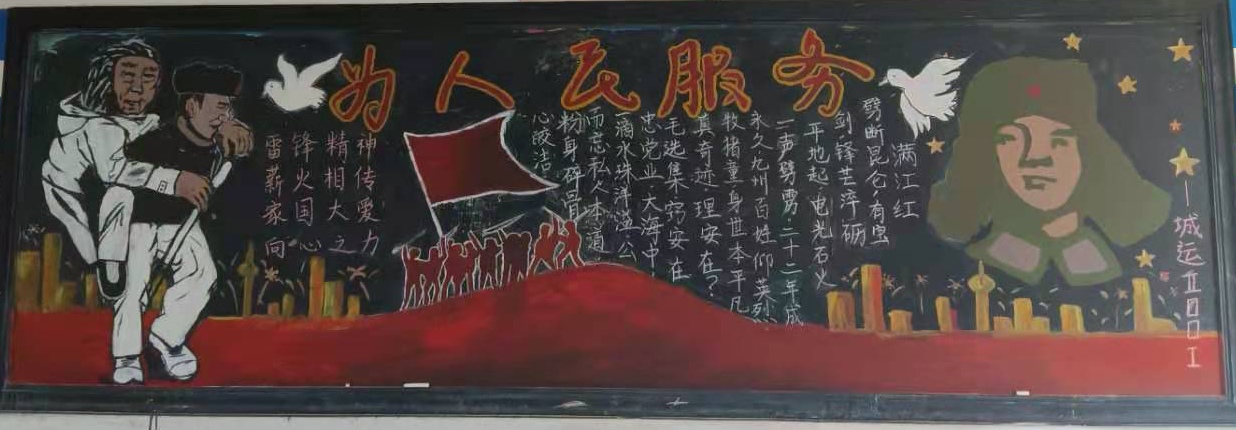 为人民服务
雷锋精神
薪火相传
家国大爱
向心之力
满江红
劈断昆仑有宝
剑锋芒淬砺
平地起电光石火
一声劈雳二十二年成
永久九州百姓仰英烈
牧猪童身世本平凡
真奇迹理安在?
毛选集窍安在
忠党业大海中
一滴水珠洋溢公
而忘私久本通
粉身碎骨
心皎洁
—城运五00I